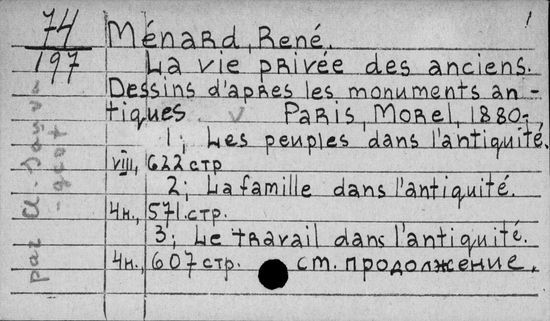 1
74
197
Ménard, René.
La vie privée des anciens.
Dessins d'apres les monuments an-
tiques V Paris, Morel, 1880-,
1; Les peuples dans l'antiquité.
VIII, 622 стр
2; La famille dans l'antiquité.
4н., 571. стр.
3; Le travail dans l'antiquité.
4н., 607 стр. ст. продолжение.
par Cl. Sauva
-geot